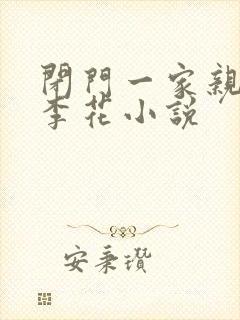 閉門一家親
李花小說
安秉瓚